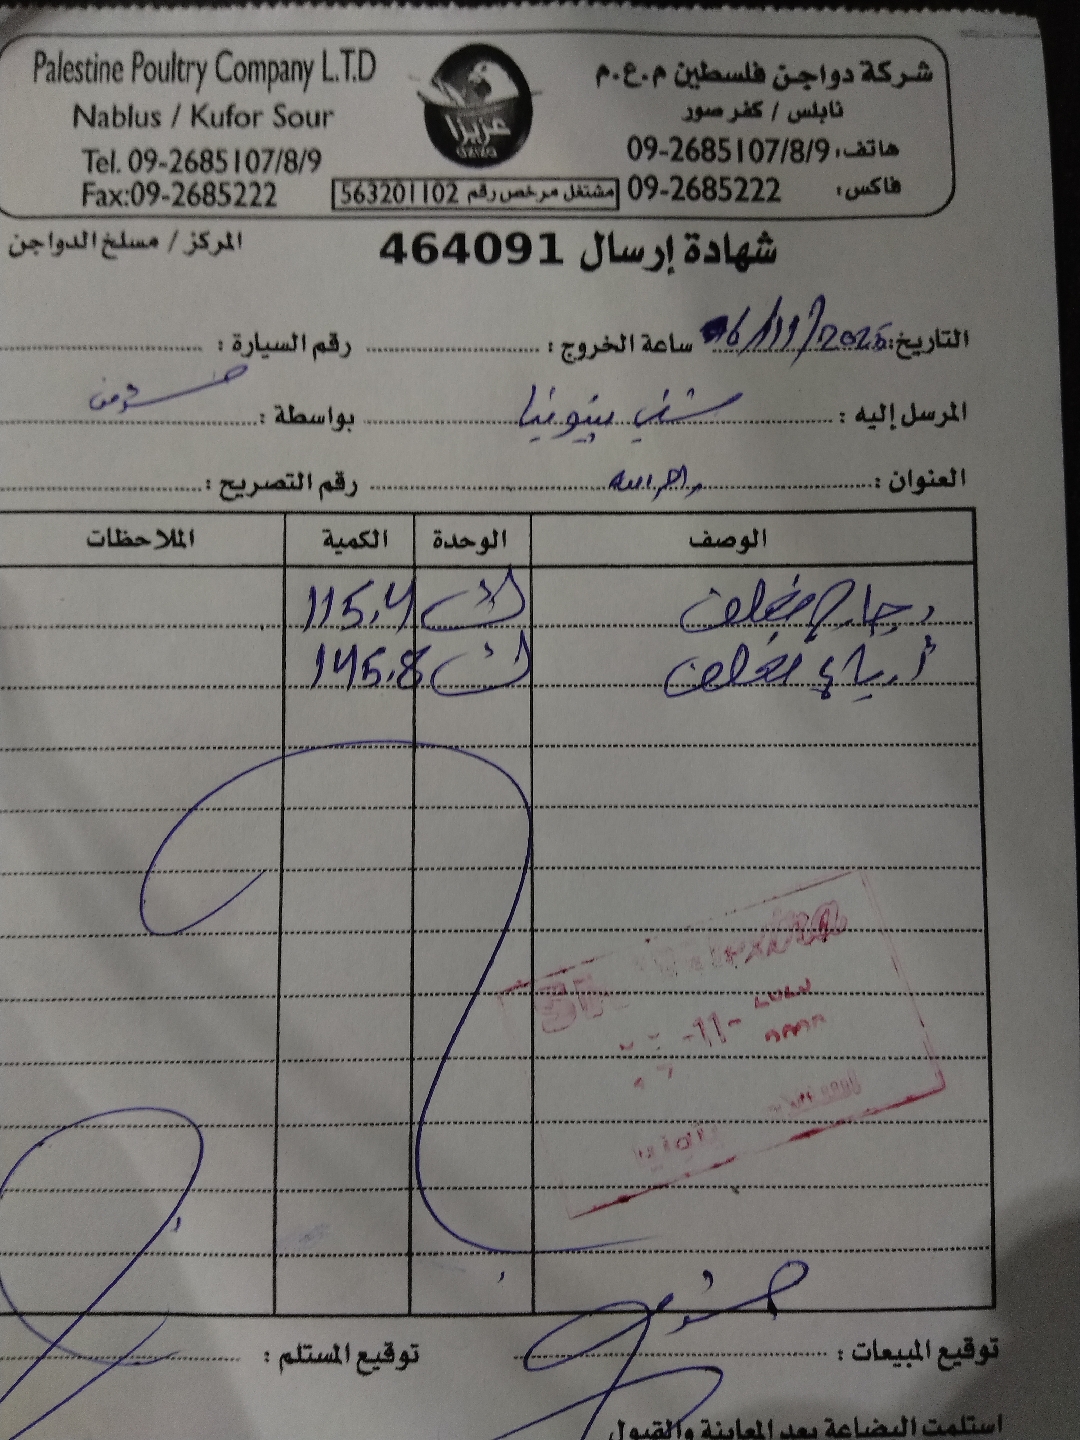 Palestine Poultry Company L.T.D
Nablus / Kufor Sour
Tel. 09-2685107/8/9
Fax:09-2685222
عزيزا
شركة دواجن فلسطين م.ع.م
نابلس / كفر صور
هاتف: 09-2685107/8/9
فاكس: 09-2685222
مشتغل مرخص رقم 563201102
شهادة إرسال 464091
المركز / مسلخ الدواجن
التاريخ: 6/11/2025 ساعة الخروج : رقم السيارة :
المرسل إليه : بواسطة :
العنوان : رام الله رقم التصريح :
الوصف الوحدة الكمية الملاحظات
دجاج مغلف ك 115.4
مغلف ك 145.8
-11-
توقيع المبيعات : توقيع المستلم :
استلمت البضاعة بعد المعاينة والقبول